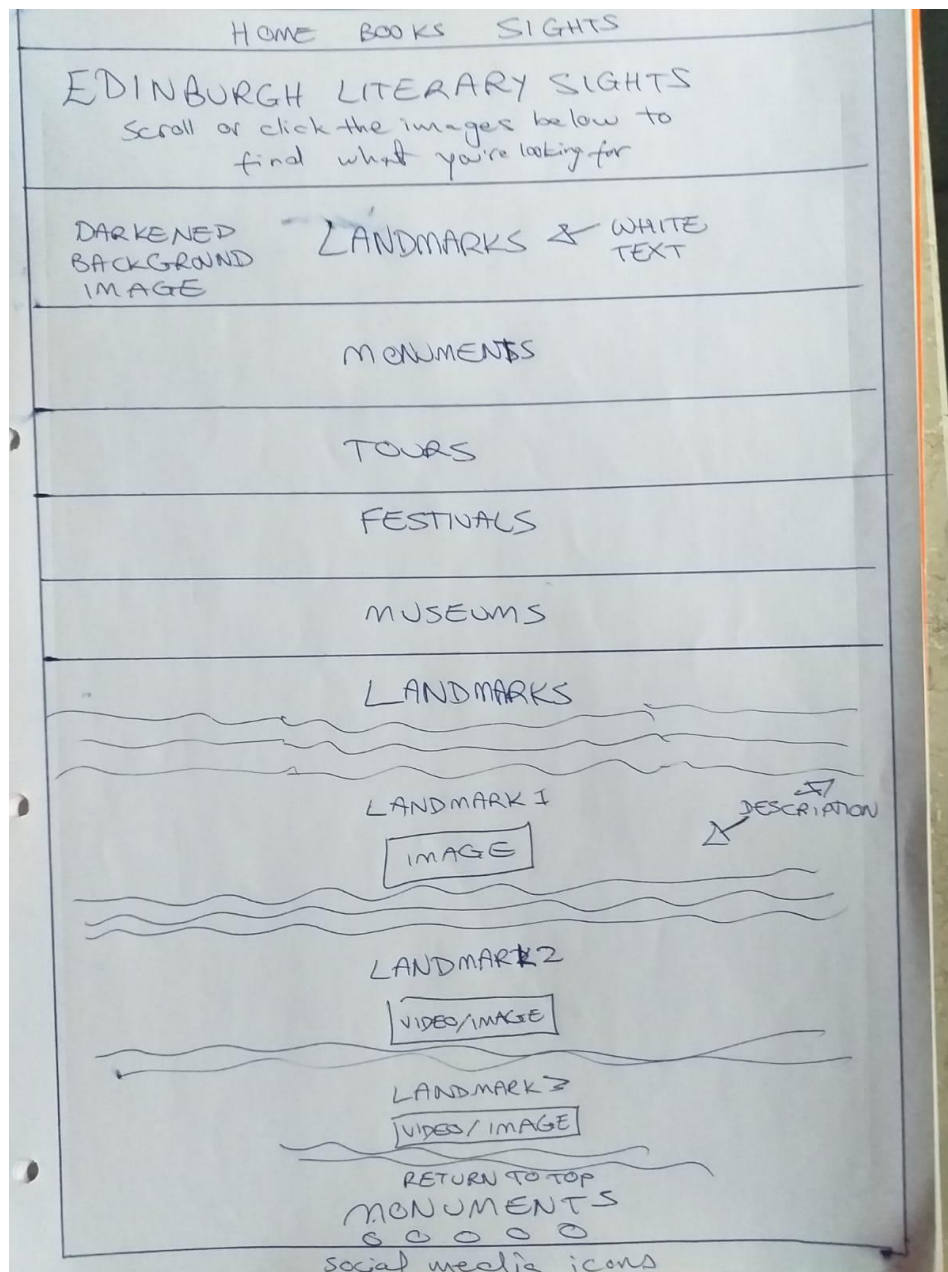 HOME BOOKS SIGHTS
EDINBURGH LITERARY SIGHTS
Scroll or click the images below to
find what you're looking for
DARKENED
BACKGROUND
IMAGE
LANDMARKS
WHITE
TEXT
MONUMENTS
TOURS
FESTIVALS
MUSEUMS
LANDMARKS
LANDMARK 1
DESCRIPTION
IMAGE
LANDMARK 2
VIDEO/IMAGE
LANDMARK 3
VIDEO/IMAGE
RETURN TO TOP
MONUMENTS
social media icons